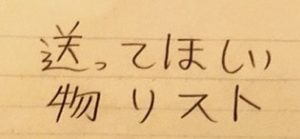 送ってほしい
物リスト